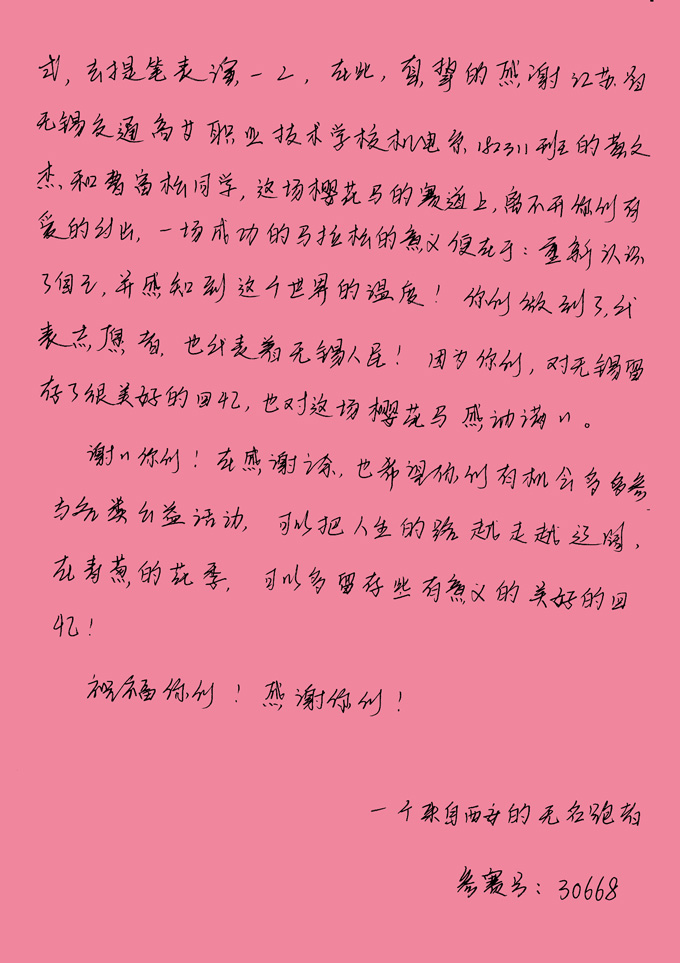 式，去提笔表谢一二，在此，真挚的感谢江苏省
无锡交通高等职业技术学校机电系182311班的黄文
杰和曹富松同学，这场樱花马的赛道上，离不开你们有
爱的付出，一场成功的马拉松的意义便在于：重新认识
了自己，并感知到这个世界的温度！你们做到了，代
表志愿者，也代表着无锡人民！因为你们，对无锡留
存了很美好的回忆，也对这场樱花马感动满满。
谢谢你们！在感谢之余，也希望你们有机会多多参
与各类公益活动，可以把人生的路越走越辽阔，
在青葱的花季，可以多留存些有意义的美好的回
忆！
祝福你们！感谢你们！
一个来自西安的无名跑者
参赛号：30668